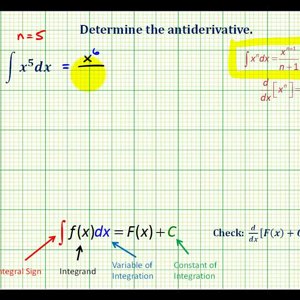 n=5
Determine the antiderivative.
∫ x⁵dx = x⁶
∫xⁿdx = xⁿ⁺¹
n+1
d/dx [xⁿ] =
∫ f(x)dx = F(x) + C
Check: d/dx [F(x) +
ntegral Sign
Integrand
Variable of
Integration
Constant of
Integration